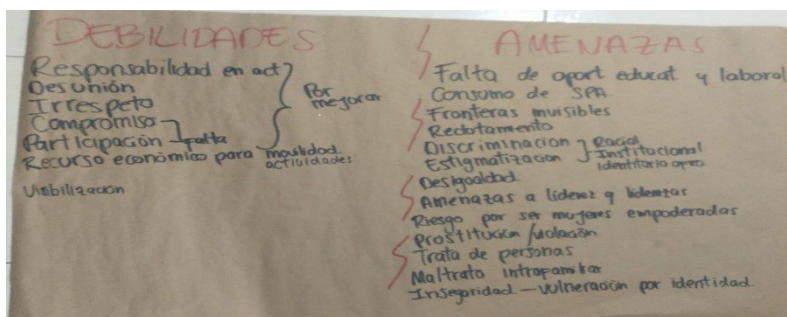 DEBILIDADES
Responsabilidad en act
Desunión
Irrespeto
Compromiso
Participación falta
Por mejorar
Recurso económico para movilidad
actividades
Visibilización
AMENAZAS
Falta de oport educat y laboral
Consumo de SPA
Fronteras invisibles
Reclutamiento
Discriminacion
Estigmatización
Racial
Institucional
identitario
Desigualdad
Amenazas a líderez y liderezas
Riesgo por ser mujeres empoderadas
Prostitución /violación
Trata de personas
Maltrato intrafamiliar
Inseguridad - vulneración por identidad.